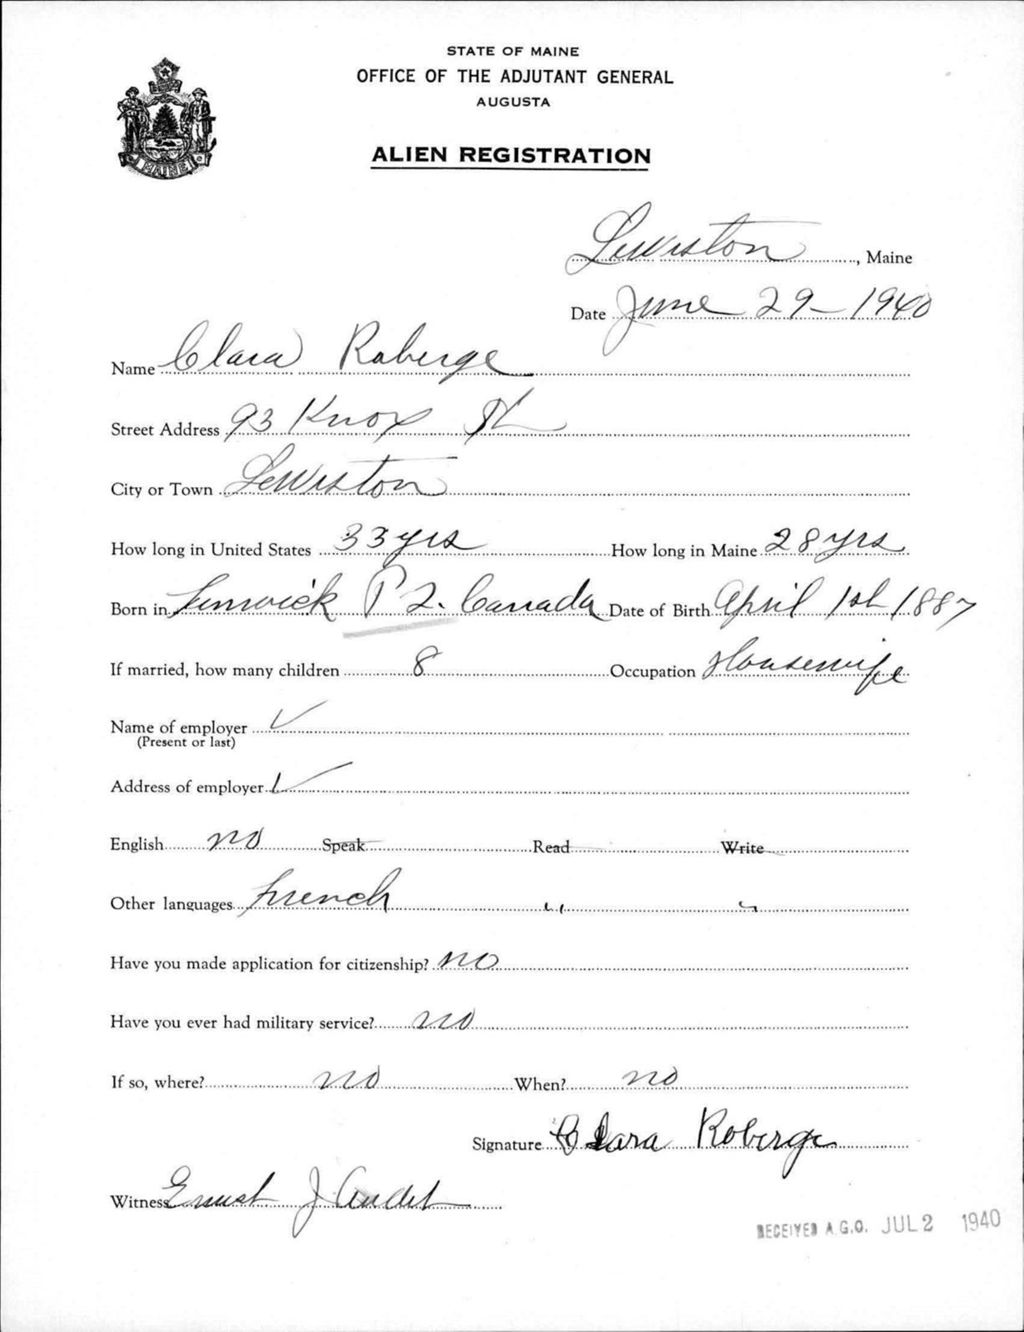 STATE OF MAINE
OFFICE OF THE ADJUTANT GENERAL
AUGUSTA
ALIEN REGISTRATION
MAINE
Lewiston, Maine
Date June 29-1940
Name Clara Roberge
Street Address 93 Knox St
City or Town Lewiston
How long in United States 33 yrs How long in Maine 28 yrs
Born in P Q. Canada Date of Birth April 1st 1887
If married, how many children 8 Occupation Housewife
Name of employer ✓
(Present or last)
Address of employer ✓
English no Speak Read Write
Other languages French " "
Have you made application for citizenship? no
Have you ever had military service? no
If so, where? no When? no
Signature Clara Roberge
Witness Ernest J Audet
RECEIVED A.G.O. JUL 2 1940